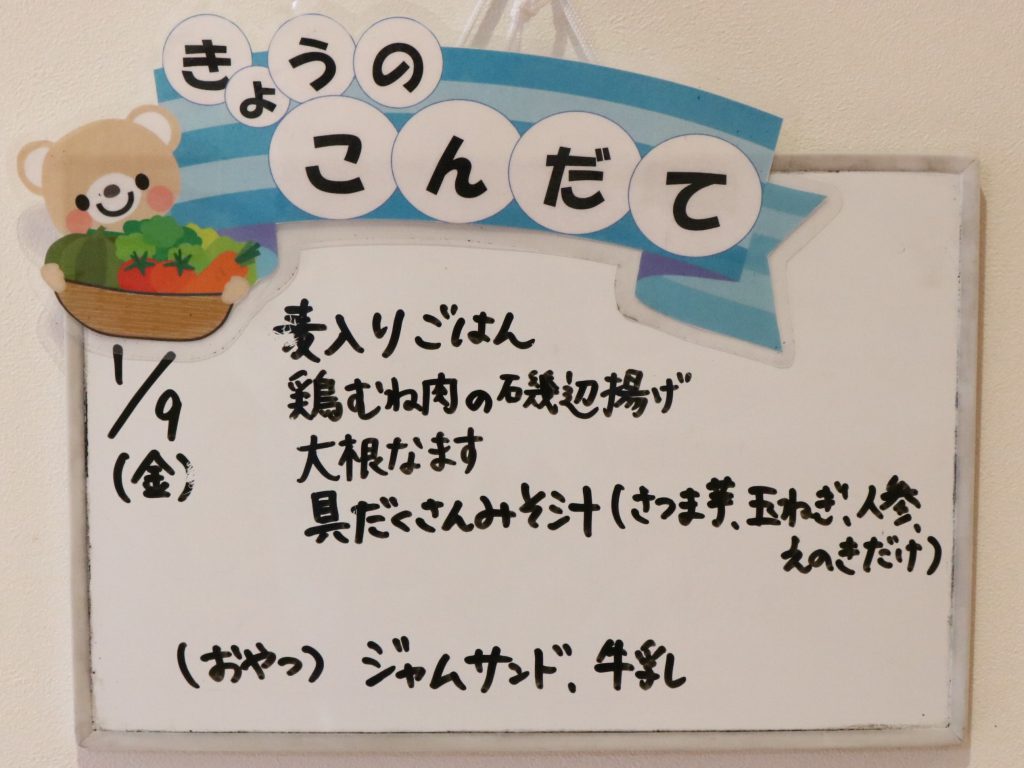 きょうの
こんだて
1/9
(金)
麦入りごはん
鶏むね肉の磯辺揚げ
大根なます
具だくさんみそ汁(さつま芋、玉ねぎ、人参、
えのきだけ)
(おやつ) ジャムサンド、牛乳